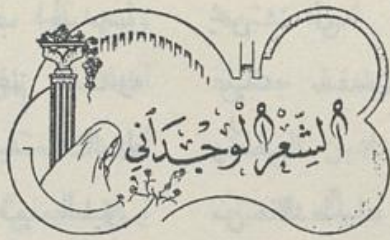 ألشِّعْرُ الْوِجْدَاني